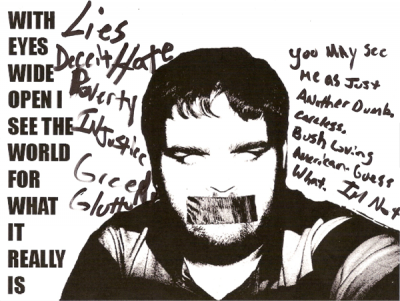 WITH
EYES
WIDE
OPEN I
SEE THE
WORLD
FOR
WHAT
IT
REALLY
IS
Lies
Deceit Hate
Poverty
INJustice
Greed
Gluttony
you May See
Me as Just
Another Dumb.
careless.
Bush Loving
American. Guess
What. I'm Not